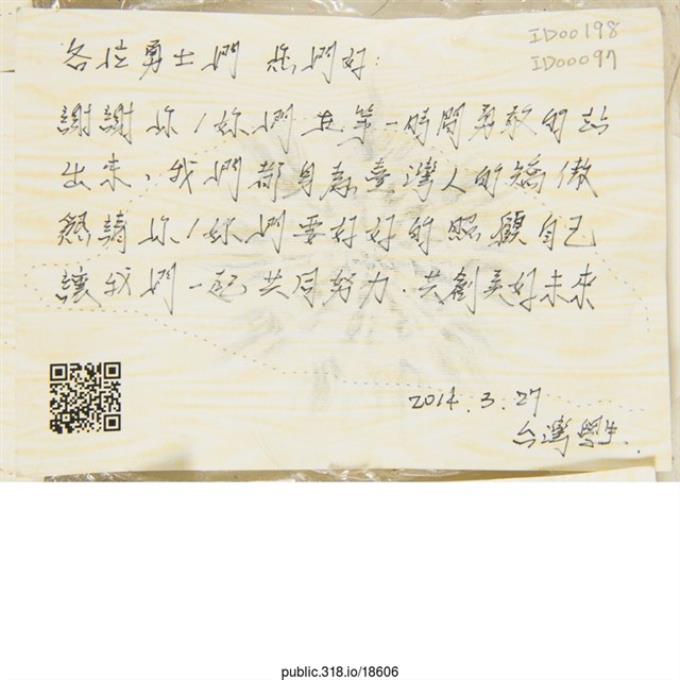 ID00198
ID00097
各位勇士們 您們好:
謝謝你/妳們在第一時間勇敢的站
出來,我們都身為臺灣人的矯傲
懇請你/妳們要好好的照顧自己
讓我們一起共同努力.共創美好未來
2014.3.27
台灣學生.
public.318.io/18606